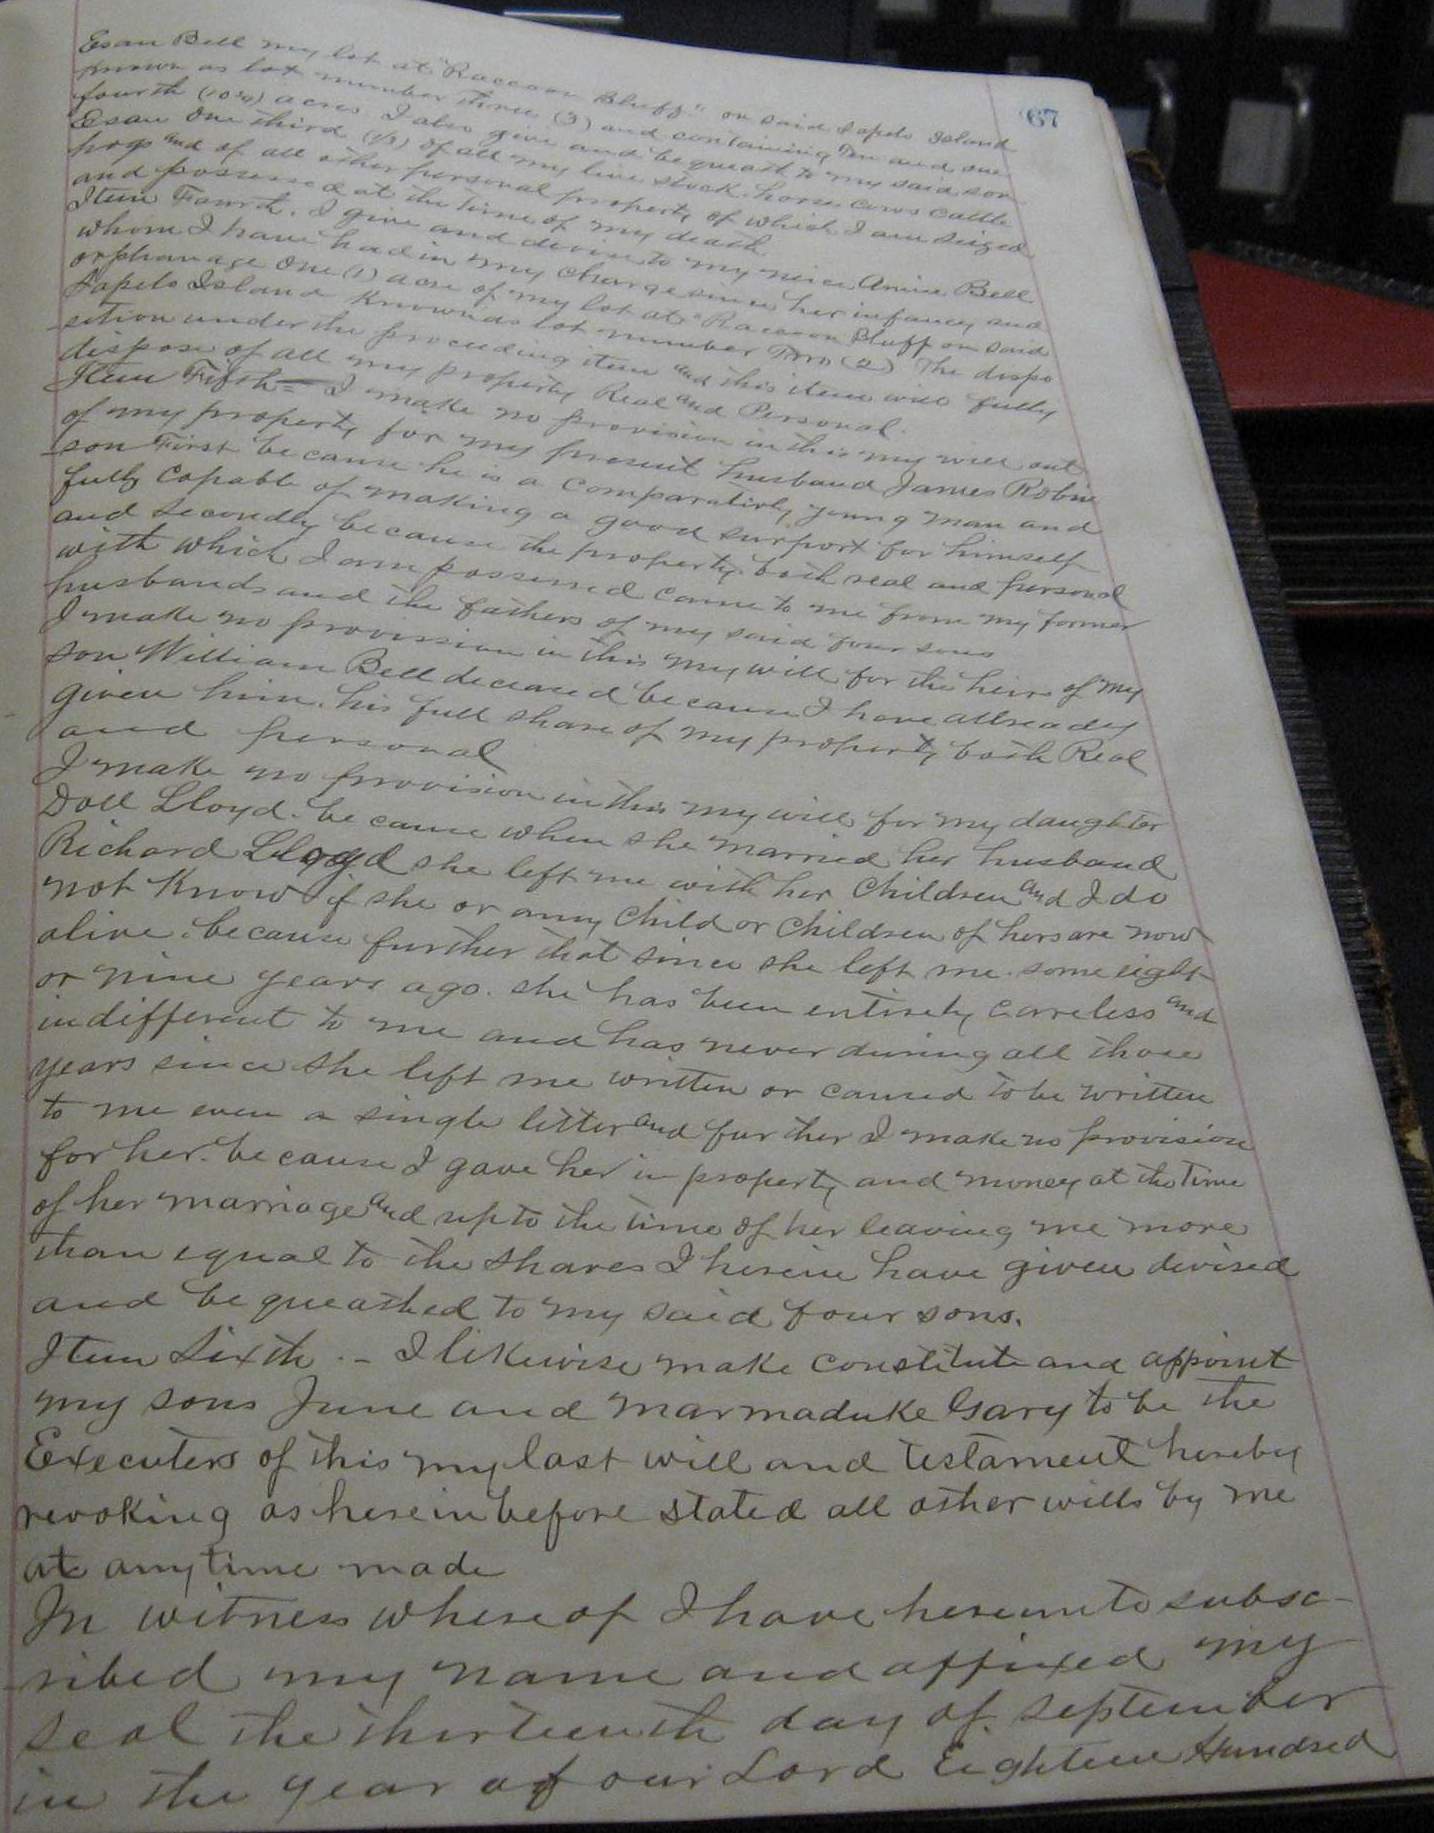 67
Esau Bell my lot at "Raccoon Bluff" on said Sapelo Island
known as lot number three (3) and containing Ten and one
fourth (10¼) acres I also give and bequeath to my said son
Esau One third (⅓) of all my live stock. horses cows cattle
hogs and of all other personal property of which I am seized
and possessed at the time of my death.
Item Fourth. I give and devise to my niece Annie Bell
whom I have had in my charge since her infancy and
orphanage One (1) acre of my lot at "Raccoon Bluff on said
Sapelo Island Known as lot number Two (2) The dispo
sition under the preceeding item and this item will fully
dispose of all my property Real and Personal.
Item Fifth = I make no provision in this my will out
of my property for my present husband James Robin
son First because he is a comparatively young man and
fully capable of making a good support for himself
and secondly because the property both real and personal
with which I am possessed came to me from my former
husbands and the fathers of my said four sons
I make no provission in this my will for the heirs of my
son William Bell deceased because I have allready
given him his full share of my property both Real
and personal
I make no provission in this my will for my daughter
Doll Lloyd. because when she married her husband
Richard Lloyd she left me with her Children and I do
not Know if she or any Child or Children of hers are now
alive. because further that since she left me some eight
or nine years ago. she has been entirely careless and
indifferent to me and has never during all those
years since she left me written or caused to be written
to me even a single letter and further I make no provission
for her. because I gave her in property and money at the time
of her marriage and up to the time of her leaving me more
than equal to the shares I herein have given devised
and bequeathed to my said four sons.
Item Sixth. - I likewise make constitute and appoint
my sons June and Marmaduke Gary to be the
Executers of this my last will and testament hereby
revoking as herein before stated all other wills by me
at any time made
In witness whereof I have hereunto subsc-
ribed my name and affixed my
seal the thirteenth day of September
in the year of our Lord Eighteen Hundred